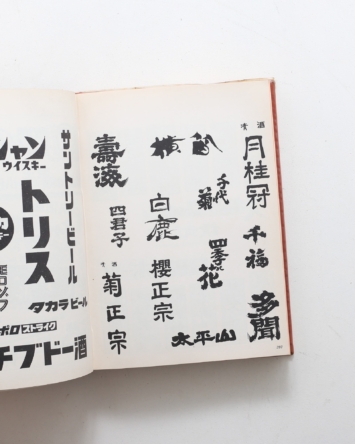 清酒
月桂冠
千福
多聞
千代
菊
四季
花
白鹿
櫻正宗
太平山
壽海
四君子
清酒
菊正宗
サントリービール
シャン
ウイスキー
トリス
タカラビール
ストライク
チブドー酒